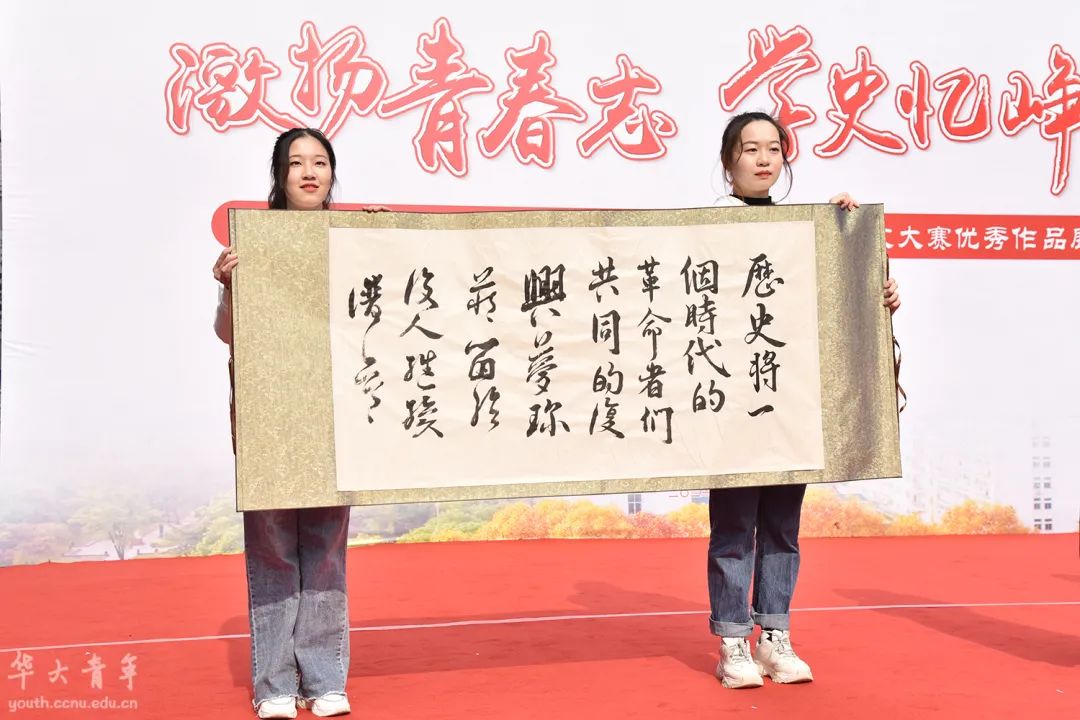 激扬青春志 学史忆峥
大赛优秀作品展
歷史将一
個時代的
革命者们
共同的復
興夢珍
藏留给
後人继续
谱写
华大青年
youth.ccnu.edu.cn